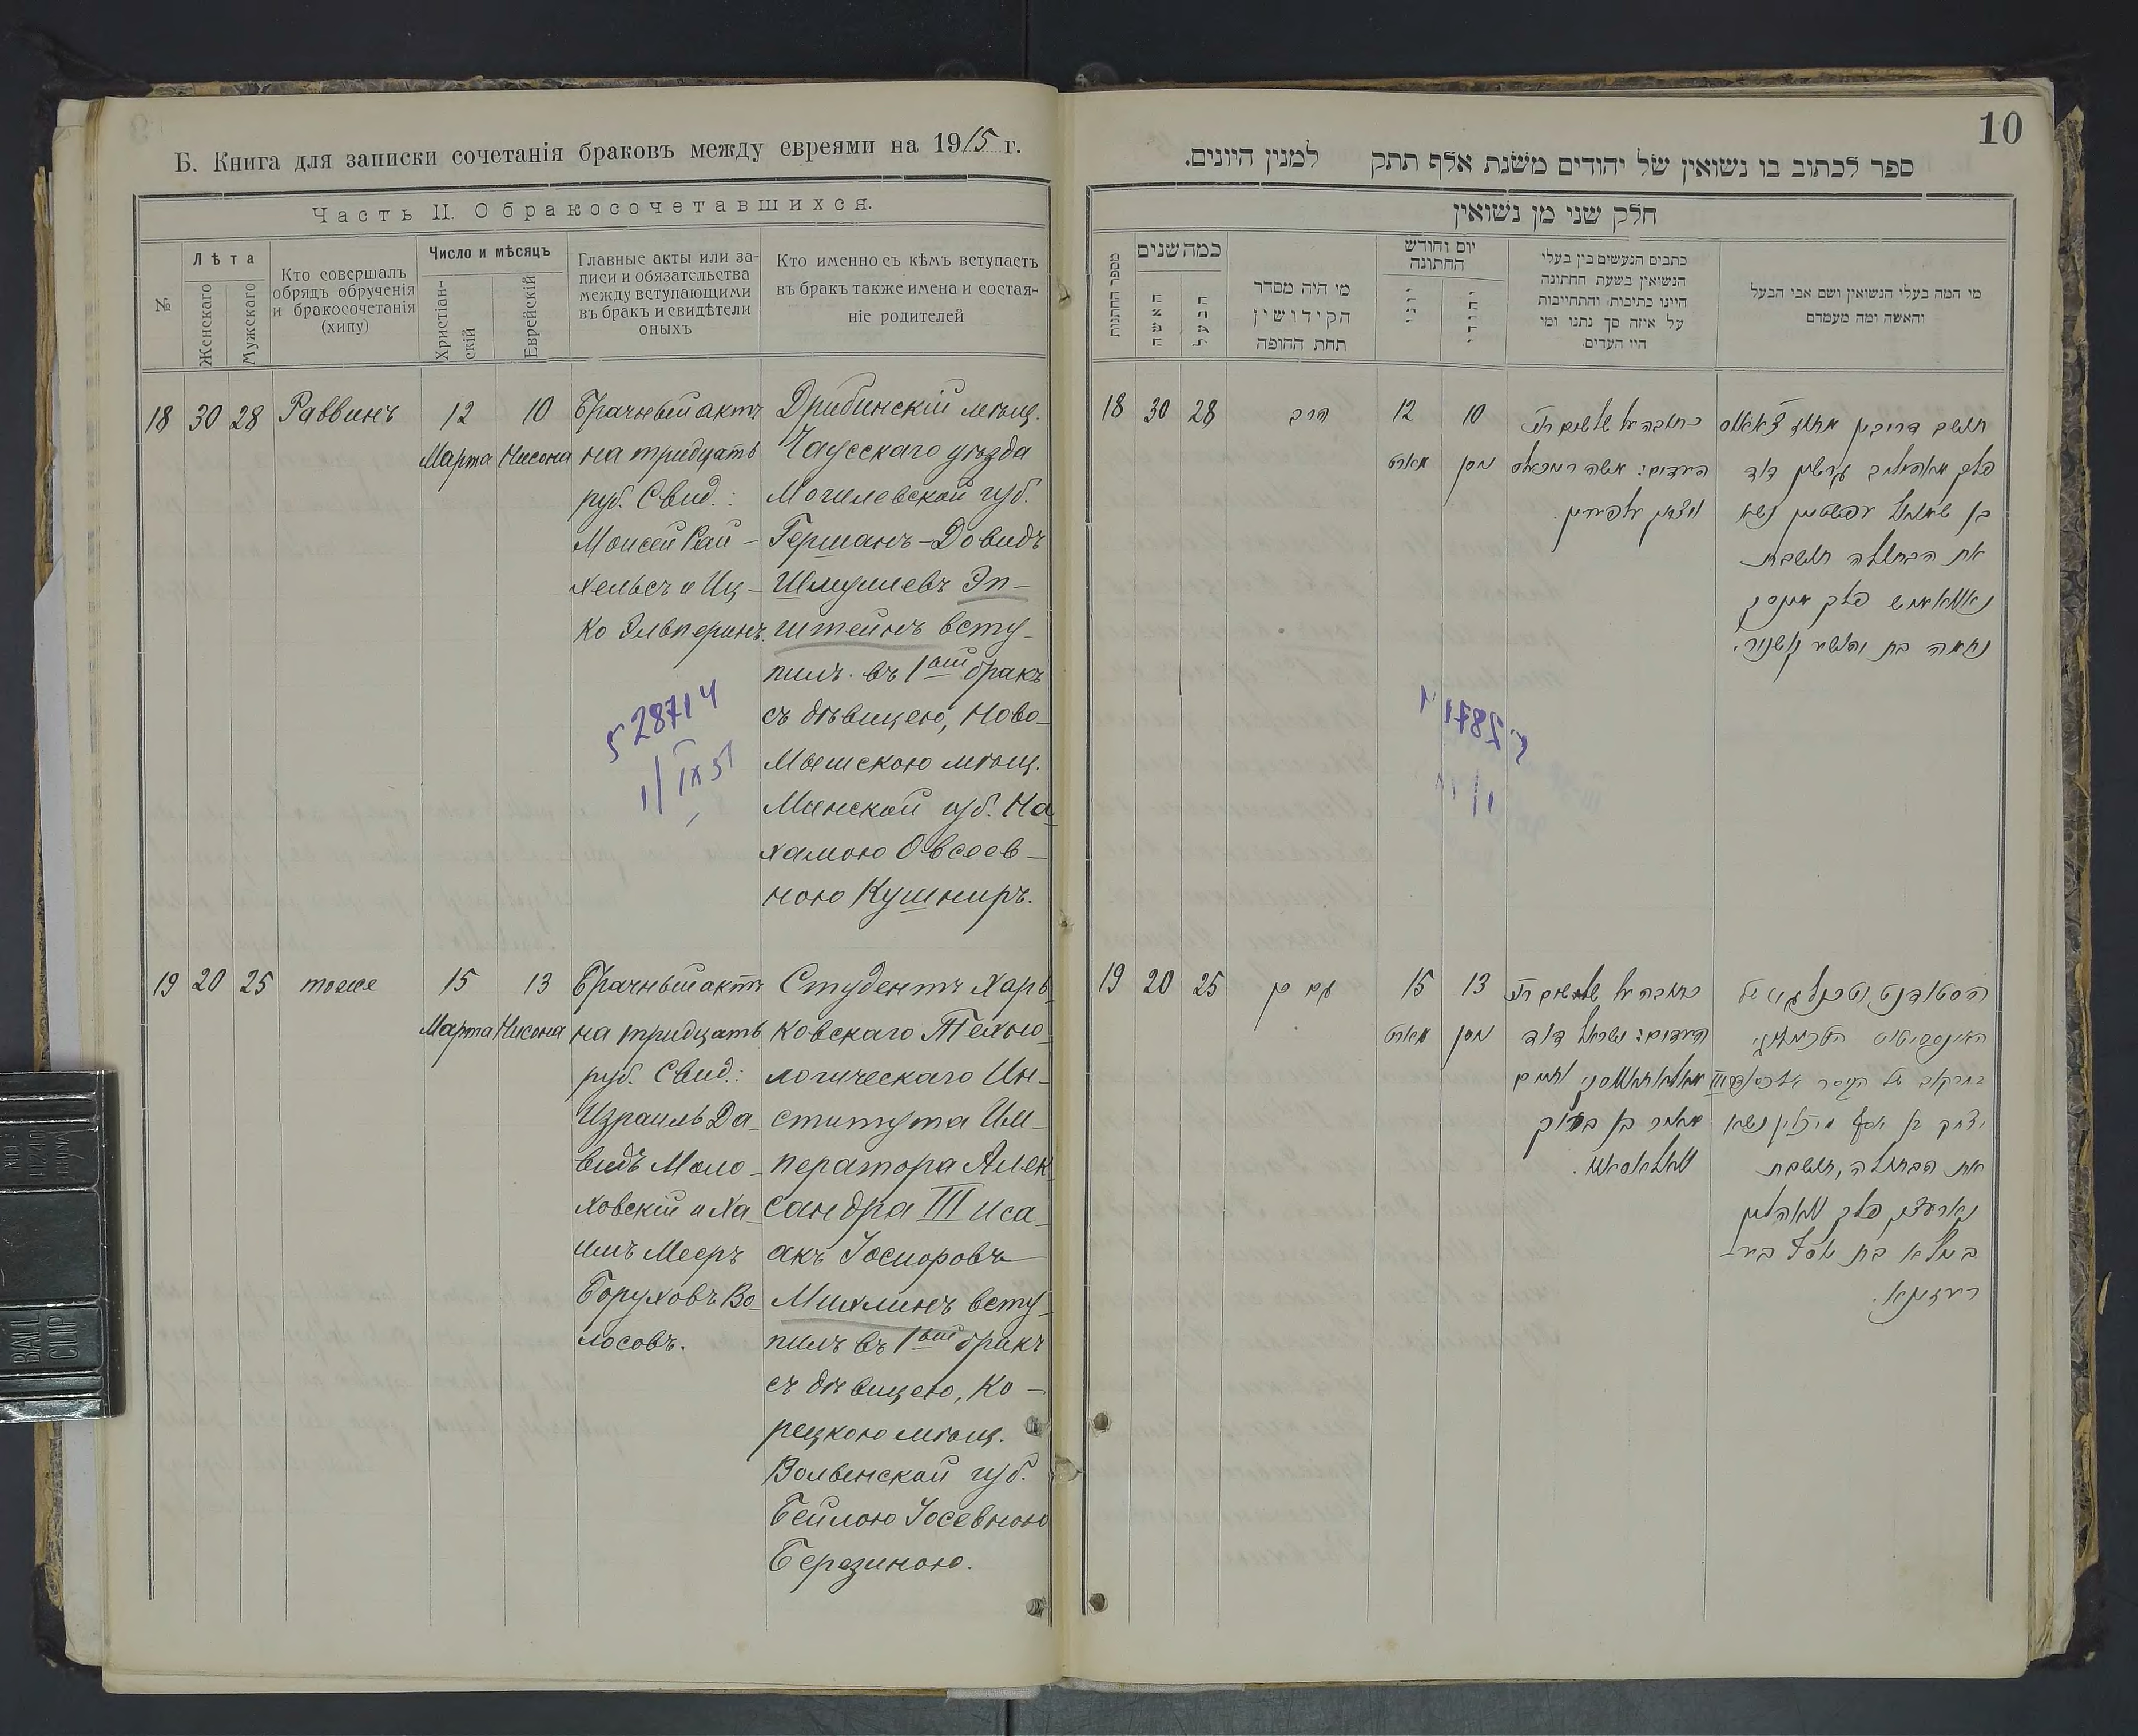 Б. Книга для записки сочетанія браковъ между евреями на 1915 г.
Часть II. О бракосочетавшихся.
№
Лѣта
Женскаго
Мужскаго
Кто совершалъ
обрядъ обрученія
и бракосочетанія
(хипу)
Число и мѣсяцъ
Христіан-
скій
Еврейскій
Главные акты или за-
писи и обязательства
между вступающими
въ бракъ и свидѣтели
оныхъ
Кто именно съ кѣмъ вступаетъ
въ бракъ также имена и состоя-
ніе родителей
18 30 28 Раввинъ
12
Марта
10
Нисона
Брачный актъ
на тридцать
руб. Свид.:
Моисей Рай-
хельсъ и Иц-
ко Эльперинъ.
Дрибинскій мѣщ.
Чаусскаго уѣзда
Могилевской губ.
Германъ-Довидъ
Шмуйлевъ Эп-
штейнъ всту-
пилъ въ 1вый бракъ
съ дѣвицею, Ново-
Мышскою мѣщ.
Минской губ. На-
хамою Овсеев-
ною Кушниръ.
528714
1/IX 51
19 20 25 тоже
15
Марта
13
Нисона
Брачный актъ
на тридцать
руб. Свид.:
Израиль Да-
видъ Моло-
ховскій и Ха-
имъ Мееръ
Боруховъ Во-
лосовъ.
Студентъ Харь-
ковскаго Техно-
логическаго Ин-
ститута Им-
ператора Алек
сандра III Иса-
акъ Іосиоровъ
Михлинъ всту-
пилъ въ 1вый бракъ
съ дѣвицею, Ко-
рецкою мѣщ.
Волынской губ.
Бейлою Іосевною
Березиною.
10
ספר לכתוב בו נשואין של יהודים משנת אלף תתק למנין היונים.
חלק שני מן נשואין
מספר החתנות
כמה שנים
האשה
הבעל
מי היה מסדר
הקידושין
תחת החופה
יום וחודש
החתונה
יוני
יהודי
כתבים הנעשים בין בעלי
הנשואין בשעת חחתונה
היינו כתיבות והתחייבות
על איזה סך נתנו ומי
היו העדים.
מי המה בעלי הנשואין ושם אבי הבעל
והאשה ומה מעמדם
18 30 28 הרב
12
מארט
10
ניסן
כתובה על שלשים
העדים: משה
תושב דריבין
פלך דוד
בן שמואל עפשטיין נשא
את הבתולה תושבת
פלך מינסק
נחמה בת קושניר.
19 20 25 גם כן
15
מארט
13
ניסן
כתובה על שלשים
העדים: ישראל דוד
מאיר בן ברוך
הסטודנט של
יצחק בן יוסף מיכלין נשא
את הבתולה, תושבת
פלך וואהלין
ביילא בת יוסף בע-
רעזינא.